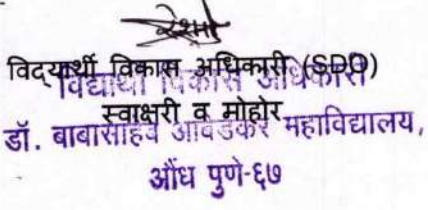 विद्यार्थी विकास अधिकारी (SDO)
विद्यार्थी विकास अधिकारी
स्वाक्षरी व मोहोर
डॉ. बाबासाहेब आंबेडकर महाविद्यालय,
औंध पुणे-६७